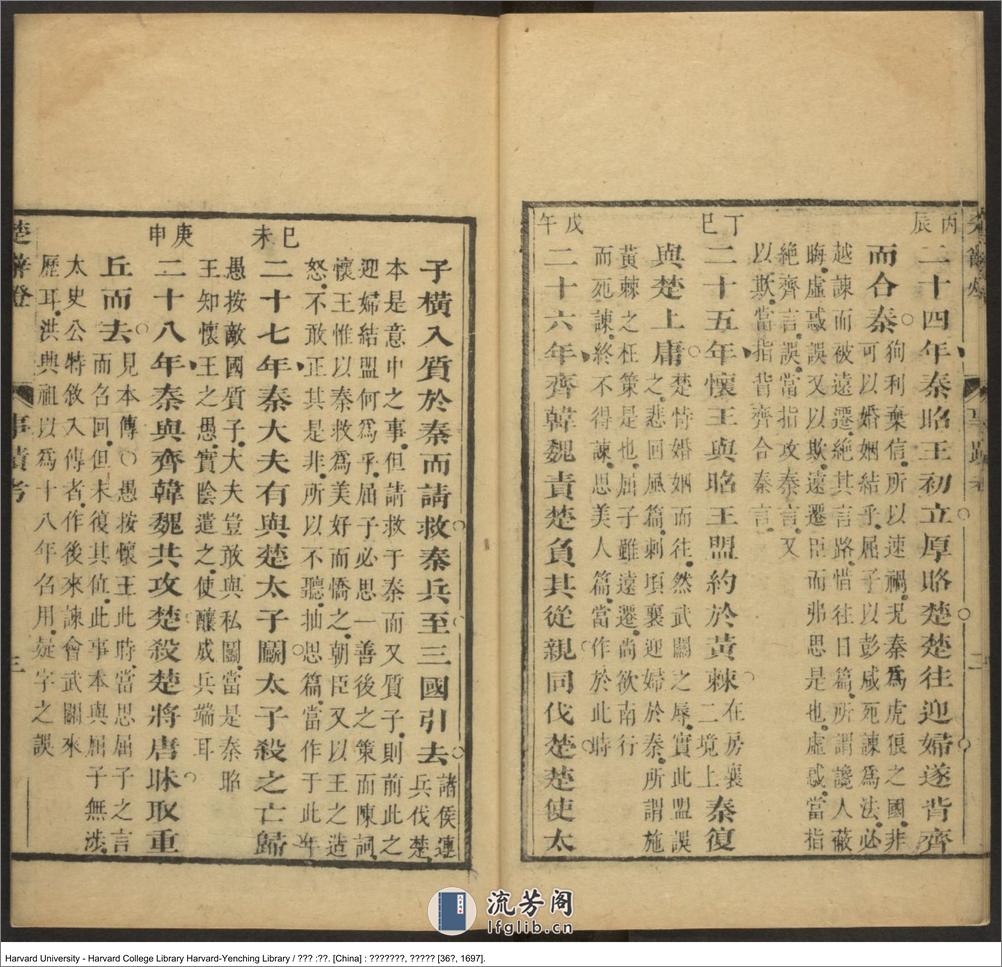 丙辰
二十四年秦昭王初立厚賂楚楚往迎婦遂背齊
而合秦狗利棄信所以速禍況秦為虎狼之國非
可以婚姻結乎屈子以彭咸死諫為法必
越諫而被遠遷絕其言路惜往日篇所謂讒人蔽
晦虛惑誤又以欺遠遷臣而弗思是也虛惑當指
絕齊言誤當指攻秦言又
以欺當指背齊合秦言
丁巳
二十五年懷王與昭王盟約於黃棘在房襄二境上秦復
與楚上庸楚恃婚姻而往然武關之辱實此盟誤
之悲回風篇刺頃襄迎婦於秦所謂施
黃棘之枉策是也屈子雖遠遷尚欲南行
而死諫終不得諫思美人篇當作於此時
戊午
二十六年齊韓魏責楚負其從親同伐楚楚使太
子橫入質於秦而請救秦兵至三國引去諸侯連兵伐楚
本是意中之事但請救于秦而又質子則前此之
迎婦結盟何為乎屈子必思一善後之策而陳詞
懷王惟以秦救為美好而憍之朝臣又以王之造
怒不敢正其是非所以不聽抽思篇當作于此年
己未
二十七年秦大夫有與楚太子鬭太子殺之亡歸
愚按敵國質子大夫豈敢與私鬭當是秦昭
王知懷王之愚實陰遣之使釀成兵端耳
庚申
二十八年秦與齊韓魏共攻楚殺楚將唐昧取重
丘而去見本傳愚按懷王此時當思屈子之言
而名回但未復其位此事本與屈子無涉
太史公特敘入傳者作後來諫會武關來
歷耳洪興祖以為十八年名用疑字之誤
楚辭燈
事蹟考
三
流芳阁
lfglib.cn
Harvard University - Harvard College Library Harvard-Yenching Library / ??? :??. [China] : ???????, ????? [36?, 1697].